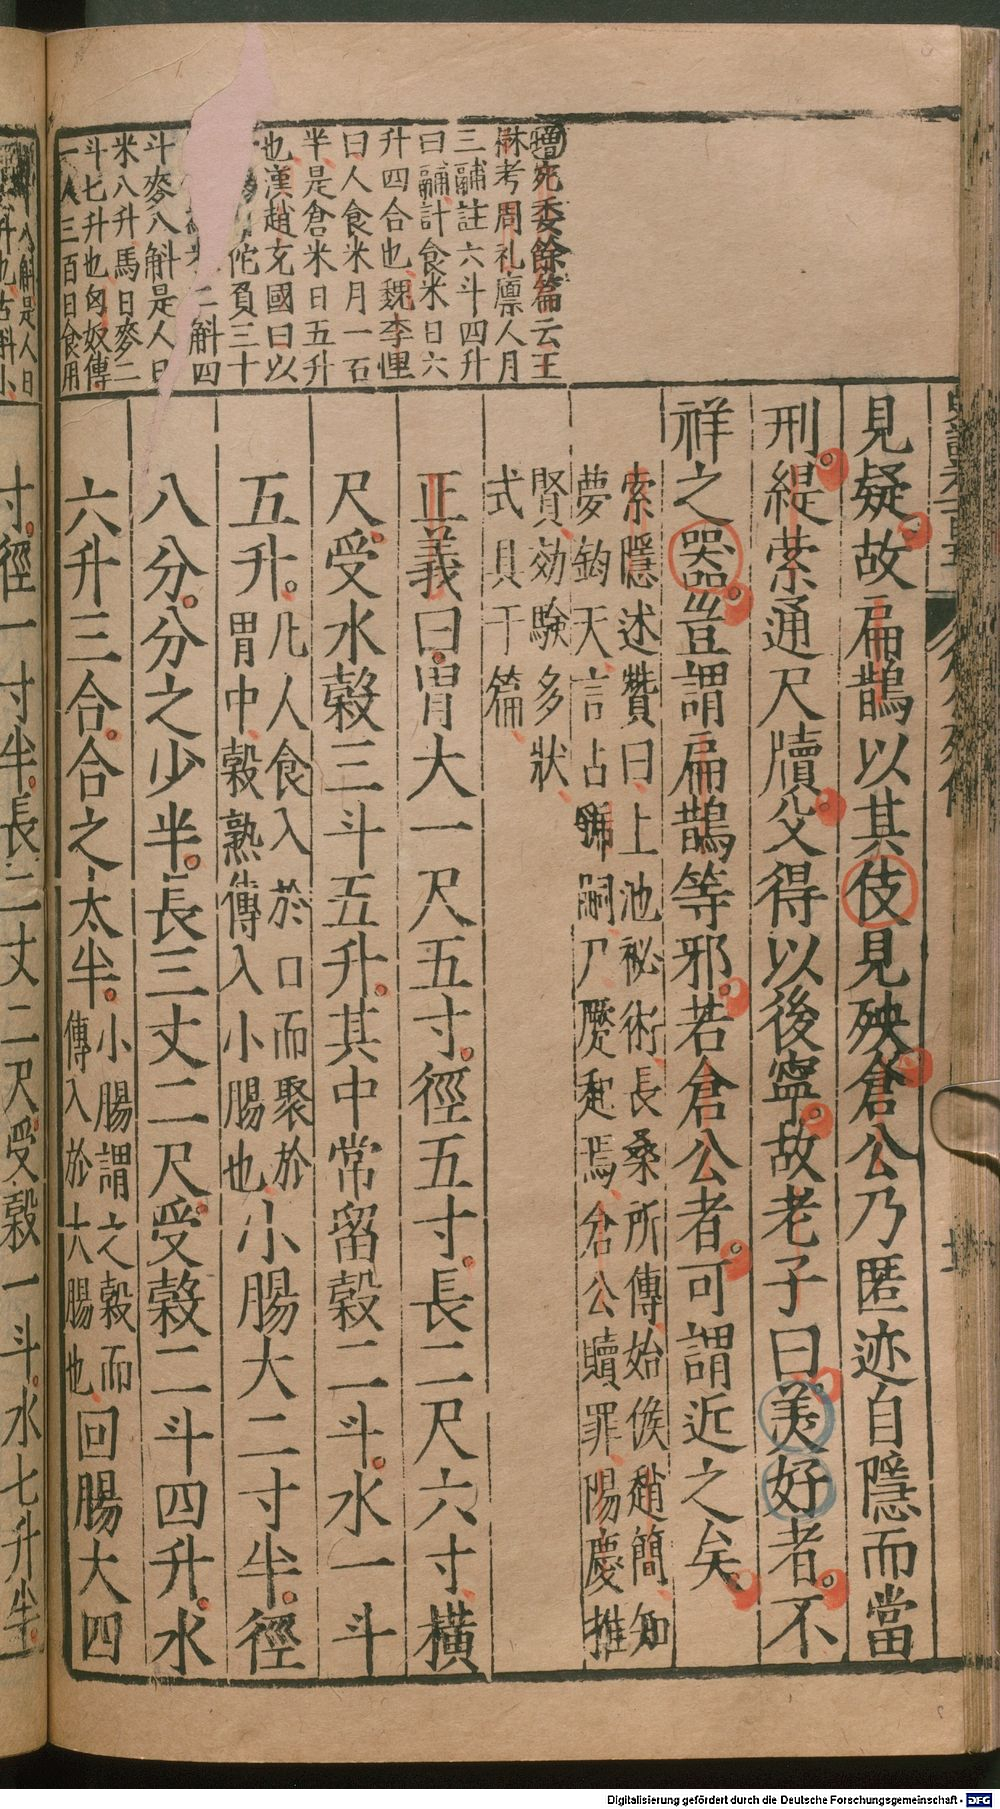 增宛委餘篇云王
秝考周礼廪人月
三鬴註六斗四升
曰鬴計食米日六
升四合也魏李悝
曰人食米月一石
半是倉米日五升
也漢趙充國曰以
佗負三十
米二斛四
斗麥八斛是人日
米八升馬日麥二
斗七升也匈奴傳
一人三百日食用
見疑故扁鵲以其伎見殃倉公乃匿迹自隱而當
刑緹縈通尺牘父得以後寧故老子曰美好者不
祥之器豈謂扁鵲等邪若倉公者可謂近之矣
索隱述贊曰上池祕術長桑所傳始候趙簡知
夢鈞天言占虢嗣尸蹷起焉倉公贖罪陽慶推
賢効驗多狀
式具于篇
正義曰胃大一尺五寸徑五寸長二尺六寸橫
尺受水穀三斗五升其中常留穀二斗水一斗
五升凡人食入於口而聚於
胃中穀熟傳入小腸也小腸大二寸半徑
八分分之少半長三丈二尺受穀二斗四升水
六升三合合之太半小腸謂之穀而
傳入於大腸也回腸大四
八斛是人日
升也古斛小
寸徑一寸半長二丈二尺受穀一斗水七升半
Digitalisierung gefördert durch die Deutsche Forschungsgemeinschaft - DFG